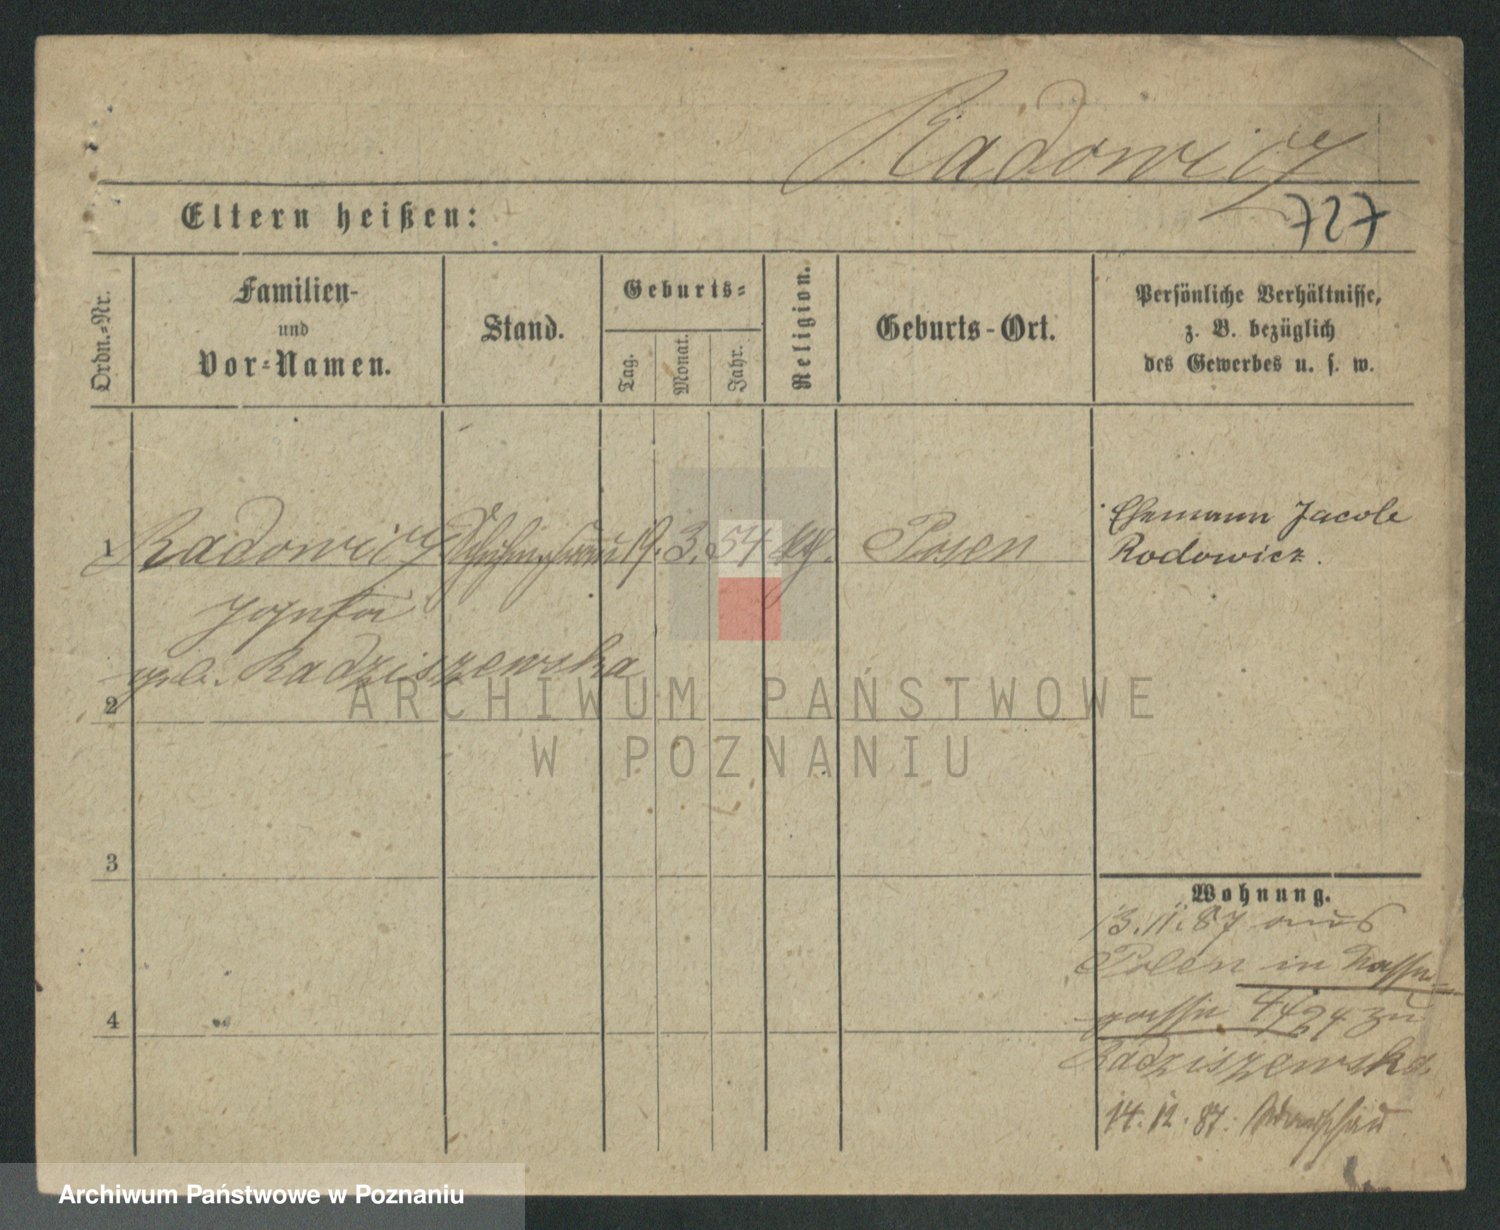 Radowicz
727
Eltern heißen:
Ordn.-Nr.
Familien-
und
Vor-Namen.
Stand.
Geburts-
Tag.
Monat.
Jahr.
Religion.
Geburts-Ort.
Persönliche Verhältnisse,
z. B. bezüglich
des Gewerbes u. s. w.
1 Radowicz 3. 54 Posen
geb. Radziszewska
Ehemann Jacob
Rodowicz.
2
3
4
Wohnung.
13. 11. 87 aus
Polen in
zu
Radziszewska
14. 12. 87.
ARCHIWUM PAŃSTWOWE
W POZNANIU
Archiwum Państwowe w Poznaniu